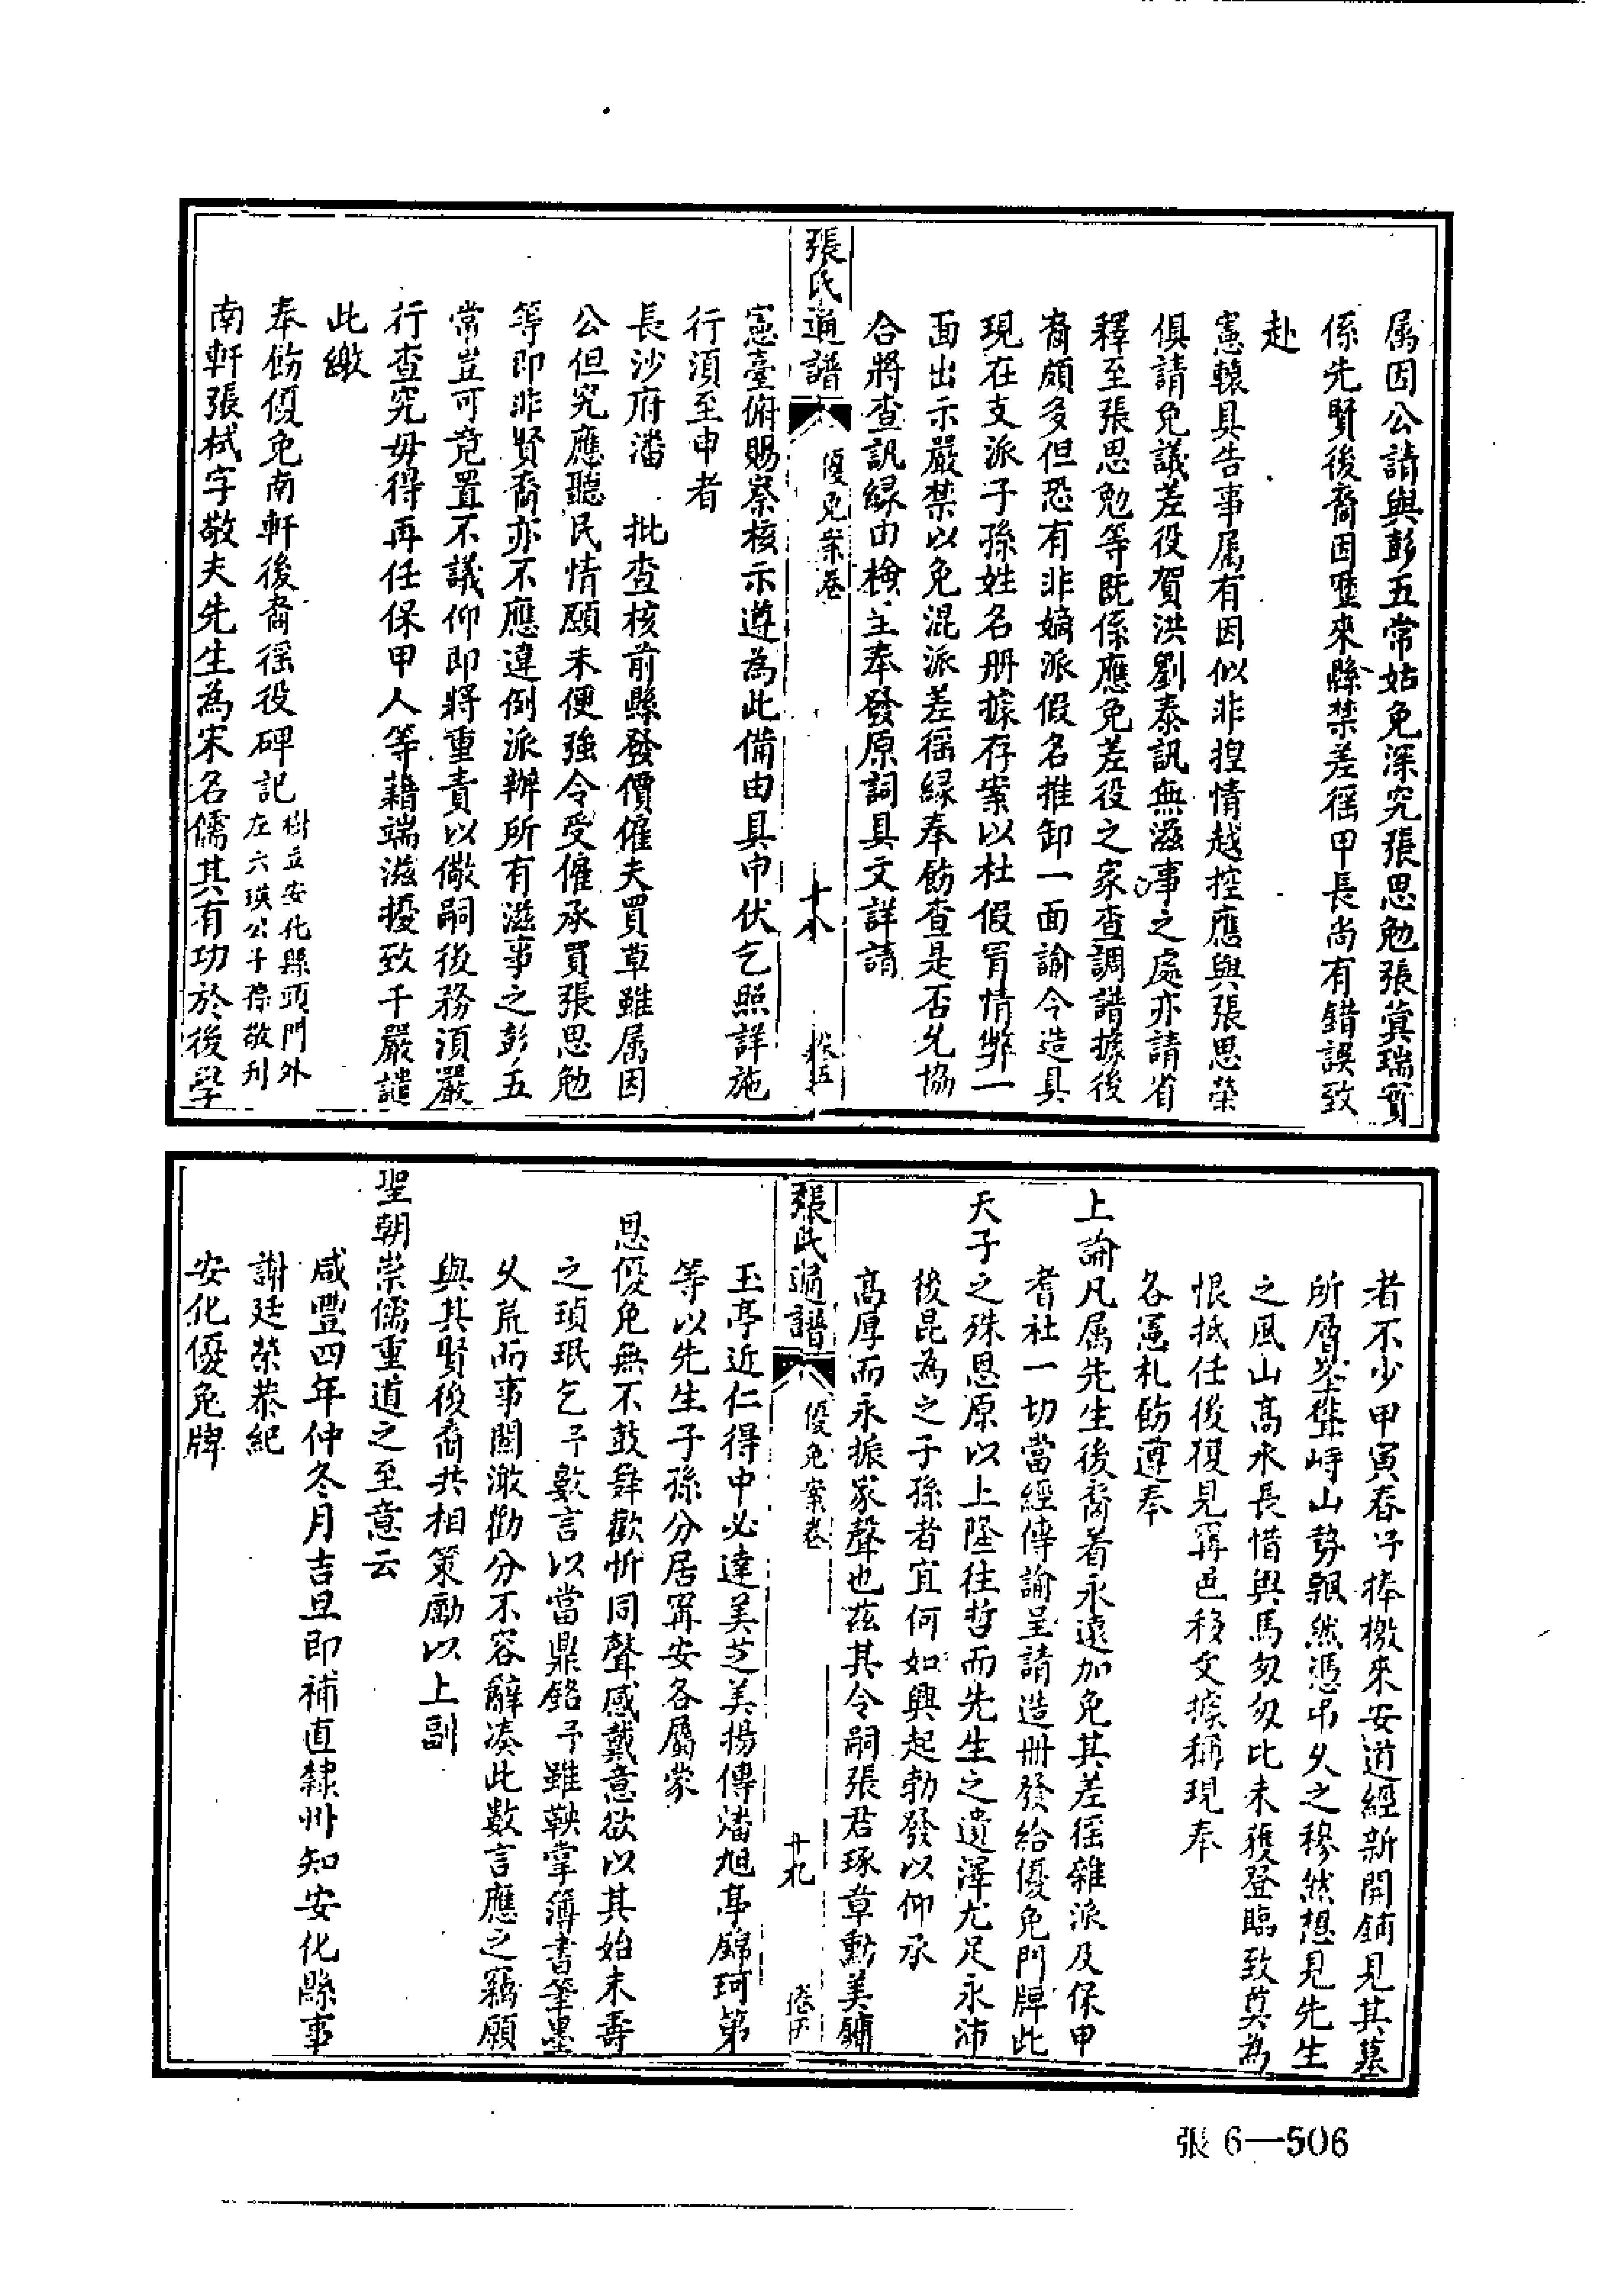 属因公請與彭五常姑免深究張思勉張蓂瑞實
係先賢後裔因歷來縣禁差徭甲長尚有錯誤致
赴
憲轅具告事属有因似非揑情越控應與張思榮
俱請免議差役賀洪劉泰訊無滋事之處亦請省
釋至張思勉等既係應免差役之家查調譜據後
裔頗多但恐有非嫡派假名推卸一面諭令造具
現在支派子孫姓名册據存案以杜假冐情弊一
面出示嚴禁以免混派差徭緣奉飭查是否允協
合將查訊緣由檢全奉發原詞具文詳請
張氏通譜
優免案卷
憲臺俯賜察核示遵為此備由具申伏乞照詳施
行須至申者
長沙府潘 批查核前縣發價僱夫買草雖属因
公但究應聽民情願未便強令受僱承買張思勉
等即非賢裔亦不應違例派辦所有滋事之彭五
常豈可竟置不議仰即將重責以儆嗣後務須嚴
行查究毋得再任保甲人等藉端滋擾致干嚴譴
此繳
奉飭優免南軒後裔徭役碑記
樹立安化縣頭門外
左六瑛公子孫敬刋
南軒張栻字敬夫先生為宋名儒其有功於後學
者不少甲寅春予捧檄來安道經新開鋪見其墓
所層巒聳峙山勢飄然憑吊久之穆然想見先生
之風山高水長惜輿馬匆匆比未獲登臨致奠為
恨抵任後復見甯邑移文據稱現奉
各憲札飭遵奉
上諭凡属先生後裔着永遠加免其差徭雜派及保甲
耆社一切當經傳諭呈請造册發給優免門牌此
天子之殊恩原以上隆往哲而先生之遺澤尤足永沛
後昆為之子孫者宜何如興起勃發以仰承
高厚而永振家聲也兹其令嗣張君琢章勳美鏞
張氏通譜
優免案卷
十九
玉亭近仁得中必達美芝美揚傳燔旭亭錦珂第
等以先生子孫分居甯安各屬蒙
恩優免無不鼓舞歡忻同聲感戴意欲以其始末壽
之瑱珉乞予數言以當鼎銘予雖鞅掌簿書筆墨
久荒而事關激勸分不容辭凑此數言應之竊願
與其賢後裔共相策勵以上副
聖朝崇儒重道之至意云
咸豐四年仲冬月吉旦即補直隸州知安化縣事
謝廷榮恭紀
安化優免牌
張 6—506